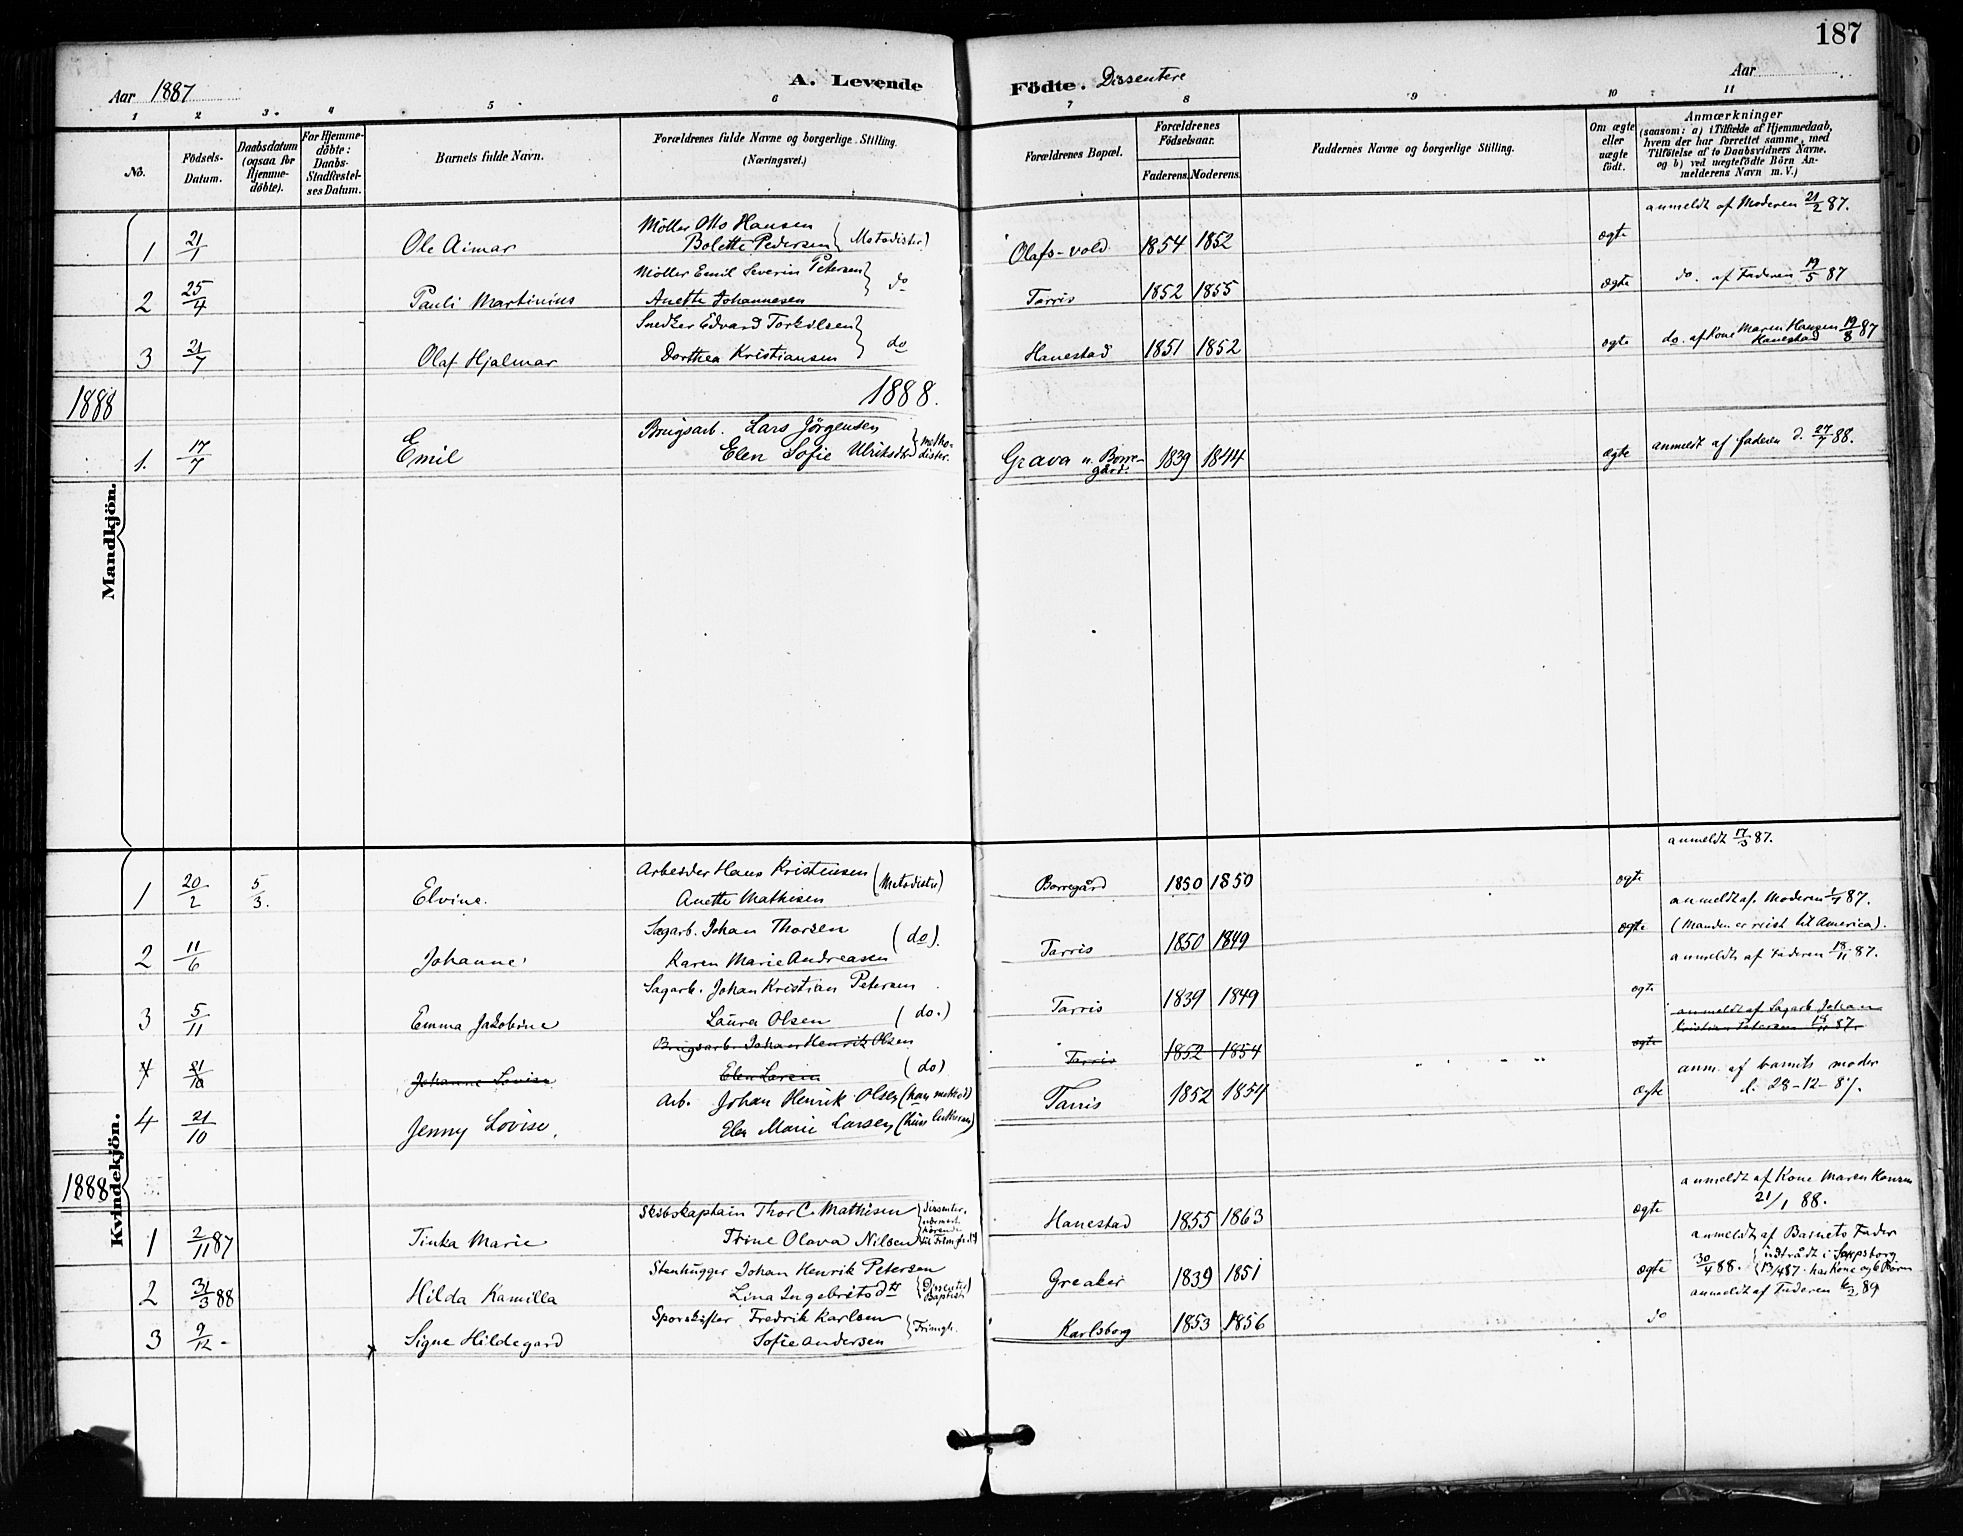 187
Aar 1887 A. Levende Födte. Dissentere Aar
1 2 3. 4 5 6 7 8 9 10 11
No. Födsels-Datum. Daabsdatum (ogsaa for Hjemme-döbte). For Hjemme-döbte: Daabs-Stadfæstel-ses Datum. Barnets fulde Navn. Forældrenes fulde Navne og borgerlige Stilling. (Næringsvei.) Forældrenes Bopæl. Forældrenes Födselsaar. Faderens. Moderens. Faddernes Navne og borgerlige Stilling. Om ægte eller uægte födt. Anmærkninger (saasom: a) i Tilfælde af Hjemmedaab, hvem der har forrettet samme, med Tilföielse af to Daabsvidners Navne, og b) ved uægtefödte Börn An-melderens Navn m. V.)
Mandkjön.
1 21/1 Ole Aimar Möller Otto Hansen Bolette Pedersen (Metodister) Olafs-vold 1854 1852 ægte anmeldt af Moderen 21/2 87.
2 25/4 Pauli Martinius Möller Emil Severin Petersen Anette Johannesen do Tarris 1852 1855 ægte do. af Faderen 19/5 87
3 21/7 Olaf Hjalmar Snedker Edvard Torkilsen Dorthea Kristiansen do Hanestad 1851 1852 ægte do. af Kone Maren Hansen Hanestad 19/8 87
1888 1888.
1. 17/7 Emil Brugsarb. Lars Jörgensen Elen Sofie Ulriksdtr metho-dister. Grava u. Borre-gård. 1839 1844 ægte anmeldt af faderen d. 27/7 88.
Kvindekjön.
1 20/2 5/3. Elvine. Arbeider Hans Kristensen Anette Mathisen (Metodister) Borregård 1850 1850 ægte anmeldt 17/3 87.
2 11/6 Johanne Sagarb. Johan Thorsen Karen Marie Andreasen (do). Tarris 1850 1849 ægte anmeldt af. Moderen 87. (Manden er reist til America).
3 5/11 Emma Jakobine Sagarb. Johan Kristian Petersen Laura Olsen (do.) Tarris 1839 1849 ægte anmeldt af Faderen 18/11 87.
4 21/10 Johanne Lovise Brugsarb. Johan Henrik Olsen Elen Larsen (do) Tarris 1852 1854 ægte anmeldt af Sagarb. Johan Kristian Petersen 18/11 87.
4 21/10 Jenny Lovise. Arb. Johan Henrik Olsen (han method) Elen Marie Larsen (hun luthersk) Tarris 1852 1854 ægte anm. af barnets moder d. 28-12-87.
1888
1 2/11 87 Tinka Marie Skibskaptain Thor C. Mathisen Trine Olava Nilsen dissenter. nærmest hörende til Frimgh. Hanestad 1855 1863 ægte anmeldt af Kone Maren Hansen 21/1 88.
2 31/3 88 Hilda Kamilla Stenhugger Johan Henrik Petersen Lina Ingebretsdtr (Dissenter Baptist) Greaker 1839 1851 ægte anmeldt af Barnets Fader 30/4 88. indtrådt i Sarpsborg 13/4 87. har Kone og 6 Börn
3 9/12 - Signe Hildegard Sporskifter Fredrik Karlsen Sofie Andersen Frimgh. Karlsborg 1853 1856 do anmeldt af Faderen 89